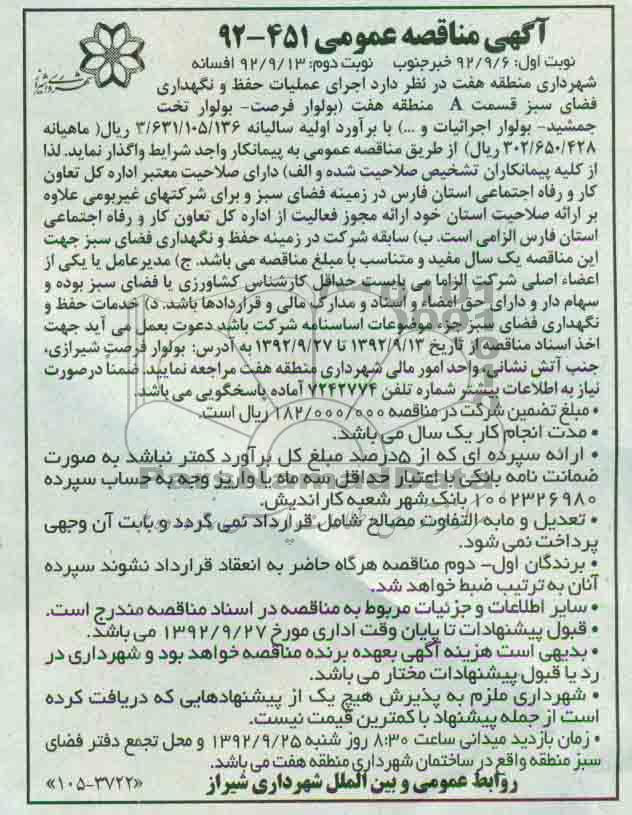 آگهی مناقصه عمومی ۴۵۱-۹۲
نوبت اول: ۹۲/۹/۶ خبرجنوب نوبت دوم: ۹۲/۹/۱۳ افسانه
شهرداری منطقه هفت در نظر دارد اجرای عملیات حفظ و نگهداری
فضای سبز قسمت A منطقه هفت (بولوار فرصت- بولوار تخت
جمشید- بولوار اجرائیات و ...) با برآورد اولیه سالیانه ۳/۶۳۱/۱۰۵/۱۳۶ ریال( ماهیانه
۳۰۲/۶۵۰/۴۲۸ ریال) از طریق مناقصه عمومی به پیمانکار واجد شرایط واگذار نماید. لذا
از کلیه پیمانکاران تشخیص صلاحیت شده و الف) دارای صلاحیت معتبر اداره کل تعاون
کار و رفاه اجتماعی استان فارس در زمینه فضای سبز و برای شرکتهای غیربومی علاوه
بر ارائه صلاحیت استان خود ارائه مجوز فعالیت از اداره کل تعاون کار و رفاه اجتماعی
استان فارس الزامی است. ب) سابقه شرکت در زمینه حفظ و نگهداری فضای سبز جهت
این مناقصه یک سال مفید و متناسب با مبلغ مناقصه می باشد. ج) مدیرعامل یا یکی از
اعضاء اصلی شرکت الزاما می بایست حداقل کارشناس کشاورزی یا فضای سبز بوده و
سهام دار و دارای حق امضاء و اسناد و مدارک مالی و قراردادها باشد. د) خدمات حفظ و
نگهداری فضای سبز جزء موضوعات اساسنامه شرکت باشد دعوت بعمل می آید جهت
اخذ اسناد مناقصه از تاریخ ۱۳۹۲/۹/۱۳ تا ۱۳۹۲/۹/۲۷ به آدرس: بولوار فرصت شیرازی،
جنب آتش نشانی، واحد امور مالی شهرداری منطقه هفت مراجعه نمایید. ضمناً درصورت
نیاز به اطلاعات بیشتر شماره تلفن ۷۲۴۲۷۷۴ آماده پاسخگویی می باشد.
• مبلغ تضمین شرکت در مناقصه ۱۸۲/۰۰۰/۰۰۰ ریال است.
• مدت انجام کار یک سال می باشد.
• ارائه سپرده ای که از ۵درصد مبلغ کل برآورد کمتر نباشد به صورت
ضمانت نامه بانکی با اعتبار حداقل سه ماه یا واریز وجه به حساب سپرده
۱۰۰۲۳۲۶۹۸۰ بانک شهر شعبه کاراندیش.
• تعدیل و مابه التفاوت مصالح شامل قرارداد نمی گردد و بابت آن وجهی
پرداخت نمی شود.
• برندگان اول- دوم مناقصه هرگاه حاضر به انعقاد قرارداد نشوند سپرده
آنان به ترتیب ضبط خواهد شد.
• سایر اطلاعات و جزئیات مربوط به مناقصه در اسناد مناقصه مندرج است.
• قبول پیشنهادات تا پایان وقت اداری مورخ ۱۳۹۲/۹/۲۷ می باشد.
• بدیهی است هزینه آگهی بعهده برنده مناقصه خواهد بود و شهرداری در
رد یا قبول پیشنهادات مختار می باشد.
• شهرداری ملزم به پذیرش هیچ یک از پیشنهادهایی که دریافت کرده
است از جمله پیشنهاد با کمترین قیمت نیست.
• زمان بازدید میدانی ساعت ۸:۳۰ روز شنبه ۱۳۹۲/۹/۲۵ و محل تجمع دفتر فضای
سبز منطقه واقع در ساختمان شهرداری منطقه هفت می باشد.
روابط عمومی و بین الملل شهرداری شیراز
«۱۰۵-۳۷۲۲»
ParsNamadData